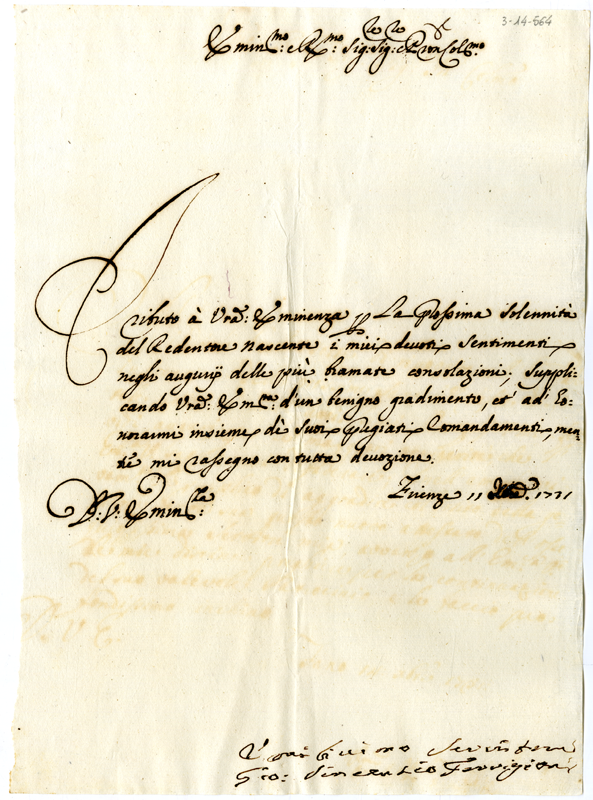 3-14-564
Emin:mo e R:mo Sig: Sig: e Pron Col:mo
Tributo à Vrã: Eminenza p La prossima solennità
del Redentore nascente i miei devoti sentimenti
negli augurij delle più bramate consolazioni; suppli=
cando Vrã: Em:za d'un benigno gradimento, et ad' Ho=
norarmi insieme de suoi pregiati Comandamenti, men=
tre mi rassegno con tutta devozione.
D: V: Emin:za
Firenze 11 1721
Servitore
Gio: